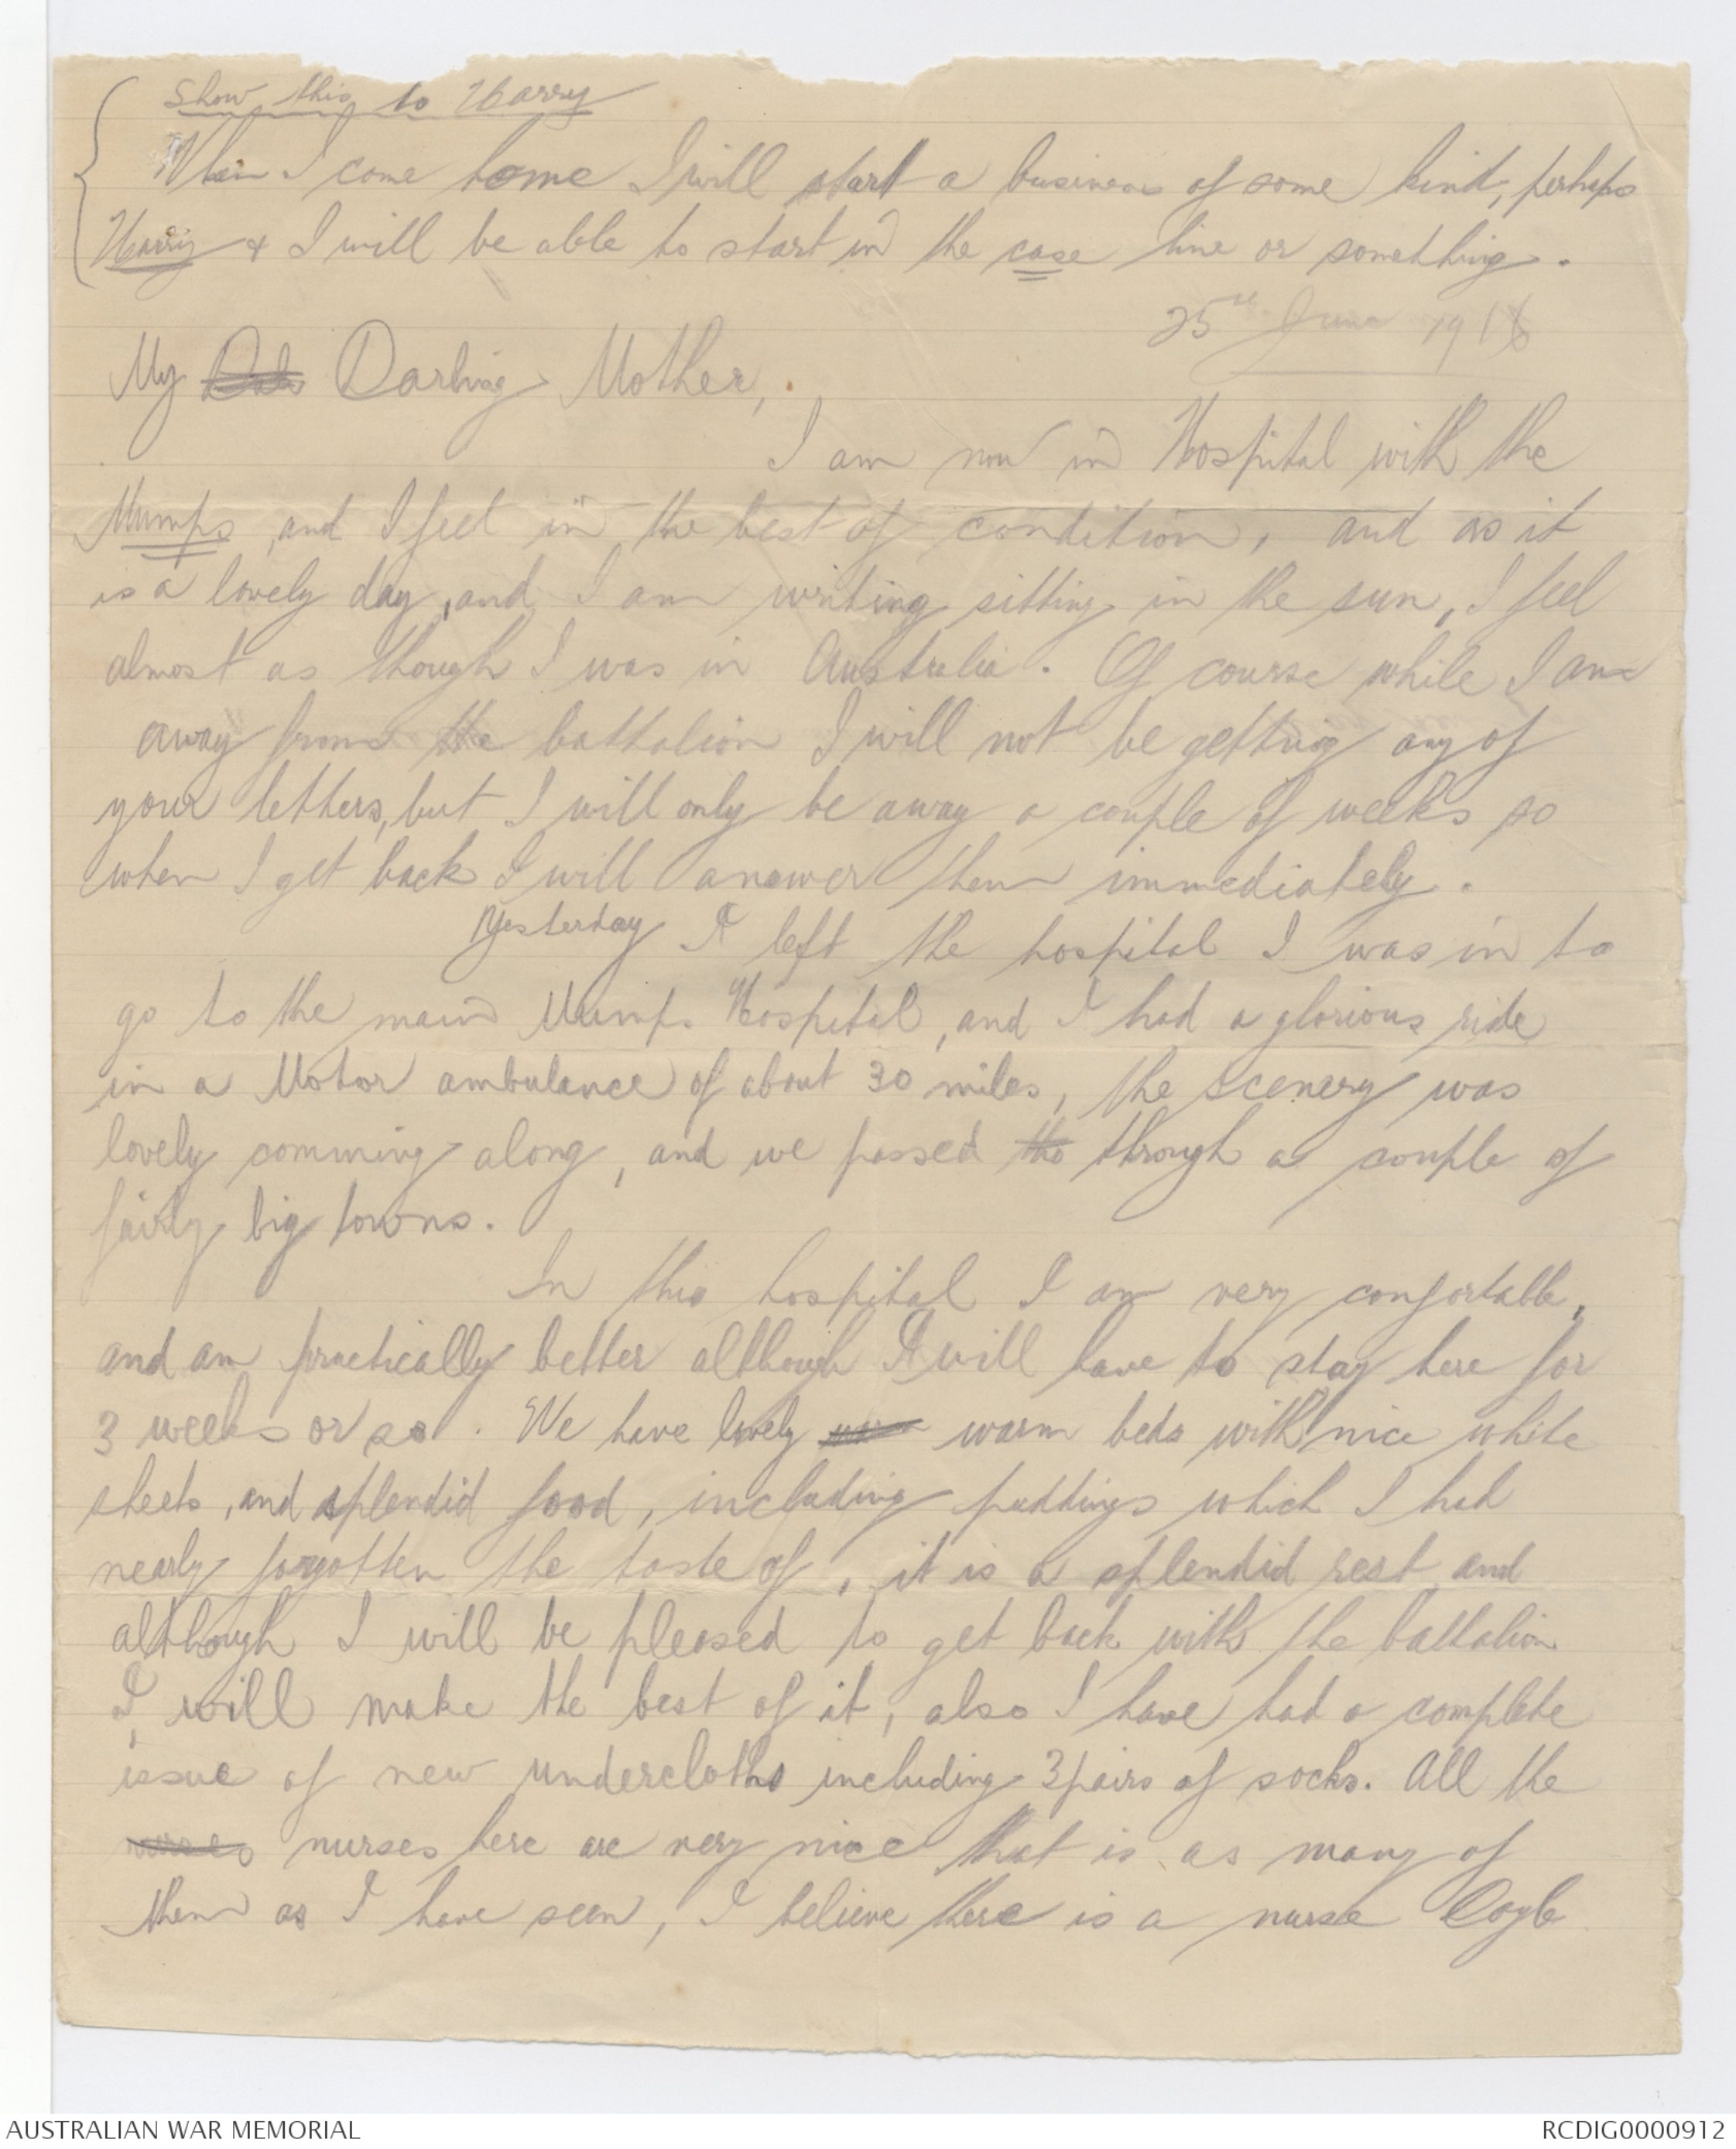 Show this to Harry
When I come home I will start a business of some kind, perhaps
Harry & I will be able to start in the case line or something.
25th June 1916
My Darling Mother,
I am now in Hospital with the
Mumps, and I feel in the best of condition, and as it
is a lovely day, and I am writing sitting in the sun, I feel
almost as though I was in Australia. Of course while I am
away from the battalion I will not be getting any of
your letters, but I will only be away a couple of weeks so
when I get back I will answer them immediately.
Yesterday I left the hospital I was in to
go to the main Mumps Hospital, and I had a glorious ride
in a Motor ambulance of about 30 miles, the scenery was
lovely comming along, and we passed tho through a couple of
fairly big towns.
In this hospital I am very confortable,
and am practically better although I will have to stay here for
3 weeks or so. We have lovely warm beds with nice white
sheets, and splendid food, including puddings which I had
nearly forgotten the taste of, it is a splendid rest and
although I will be pleased to get back with the battalion
I will make the best of it, also I have had a complete
issue of new undercloths including 3 pairs of socks. All the
nurses nurses here are very nice that is as many of
them as I have seen, I believe there is a nurse Coyle
AUSTRALIAN WAR MEMORIAL
RCDIG0000912